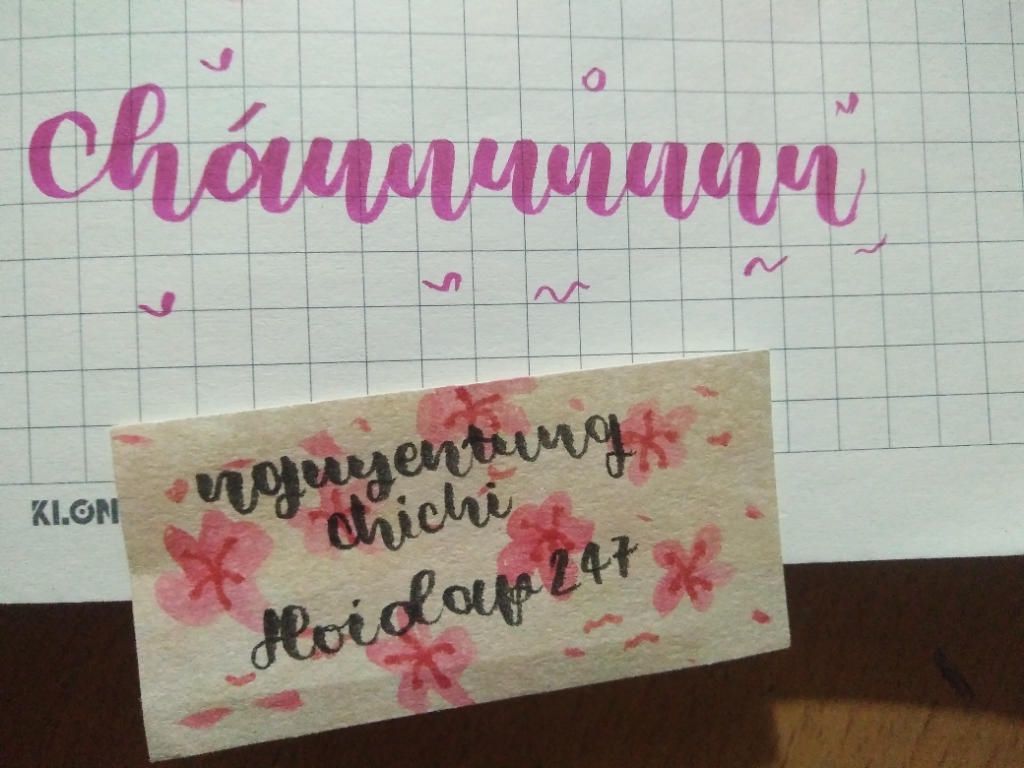 KLON
nguyentung
chichi
Hoidap 247